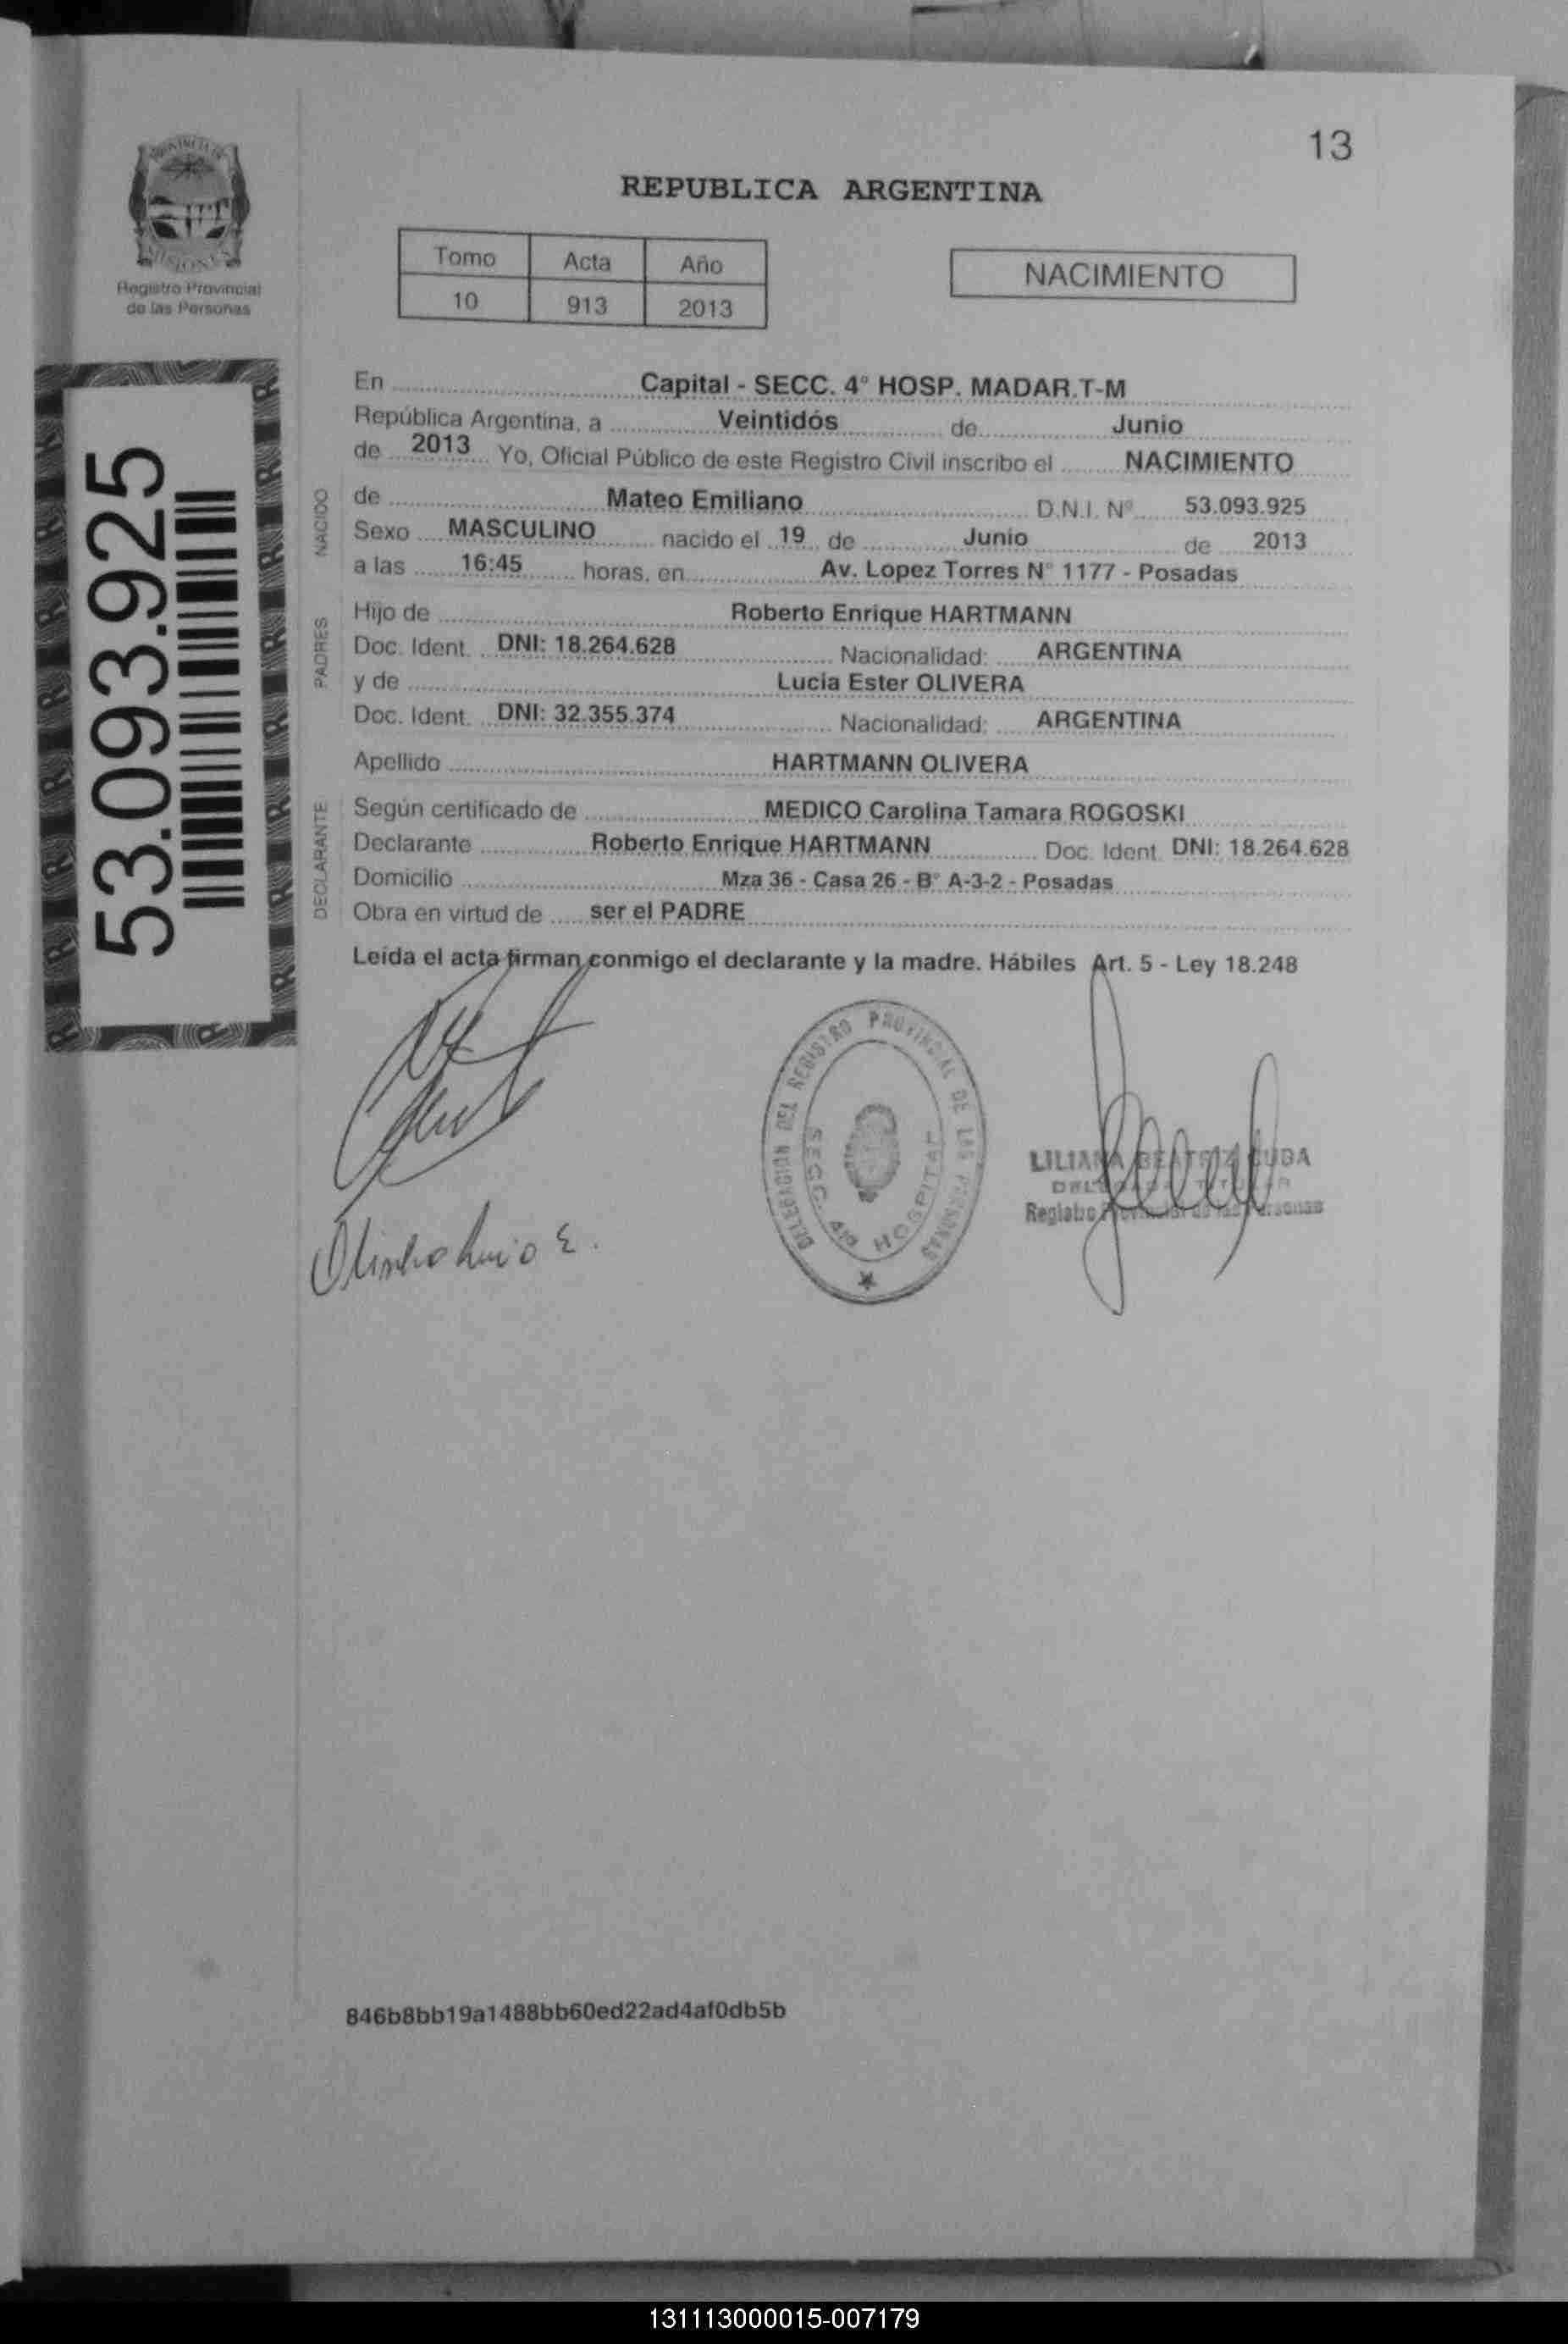 13
PROVINCIA DE
MISIONES
Registro Provincial
de las Personas
REPUBLICA ARGENTINA
Tomo Acta Año
10 913 2013
NACIMIENTO
53.093.925
En Capital - SECC. 4° HOSP. MADAR.T-M
República Argentina, a Veintidós de Junio
de 2013 Yo, Oficial Público de este Registro Civil inscribo el NACIMIENTO
NACIDO
de Mateo Emiliano D.N.I. Nº 53.093.925
Sexo MASCULINO nacido el 19 de Junio de 2013
a las 16:45 horas, en Av. Lopez Torres N° 1177 - Posadas
PADRES
Hijo de Roberto Enrique HARTMANN
Doc. Ident. DNI: 18.264.628 Nacionalidad: ARGENTINA
y de Lucia Ester OLIVERA
Doc. Ident. DNI: 32.355.374 Nacionalidad: ARGENTINA
Apellido HARTMANN OLIVERA
DECLARANTE
Según certificado de MEDICO Carolina Tamara ROGOSKI
Declarante Roberto Enrique HARTMANN Doc. Ident. DNI: 18.264.628
Domicilio Mza 36 - Casa 26 - B° A-3-2 - Posadas
Obra en virtud de ser el PADRE
Leída el acta firman conmigo el declarante y la madre. Hábiles Art. 5 - Ley 18.248
DELEGACION DEL REGISTRO PROVINCIAL DE LAS PERSONAS
SECC. 4ta HOSPITAL
LILIANA BEATRIZ
DELEGADA TITULAR
Registro Provincial de las Personas
846b8bb19a1488bb60ed22ad4af0db5b
131113000015-007179